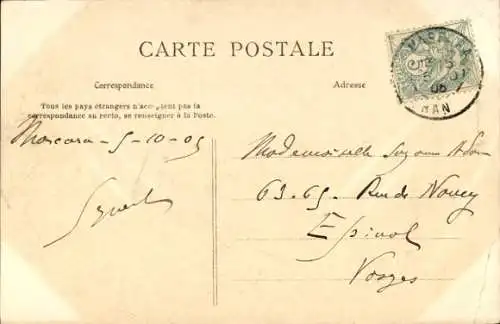 CARTE POSTALE
Correspondance
Adresse
Tous les pays étrangers n'acceptent pas la
correspondance au recto, se renseigner à la Poste.
MASCARA
05
ORAN
Mascara - 5-10-05
Mademoiselle Suzanne Adam
63-65 Rue de Nancy
Epinal
Vosges